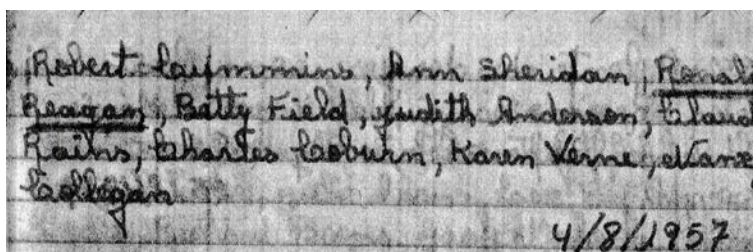 Robert Cummins, Ann Sheridan, Ronal
Reagan, Betty Field, Judith Anderson, Claud
Rains, Charles Coburn, Karen Verne, Nanc
Collegan
4/8/1957